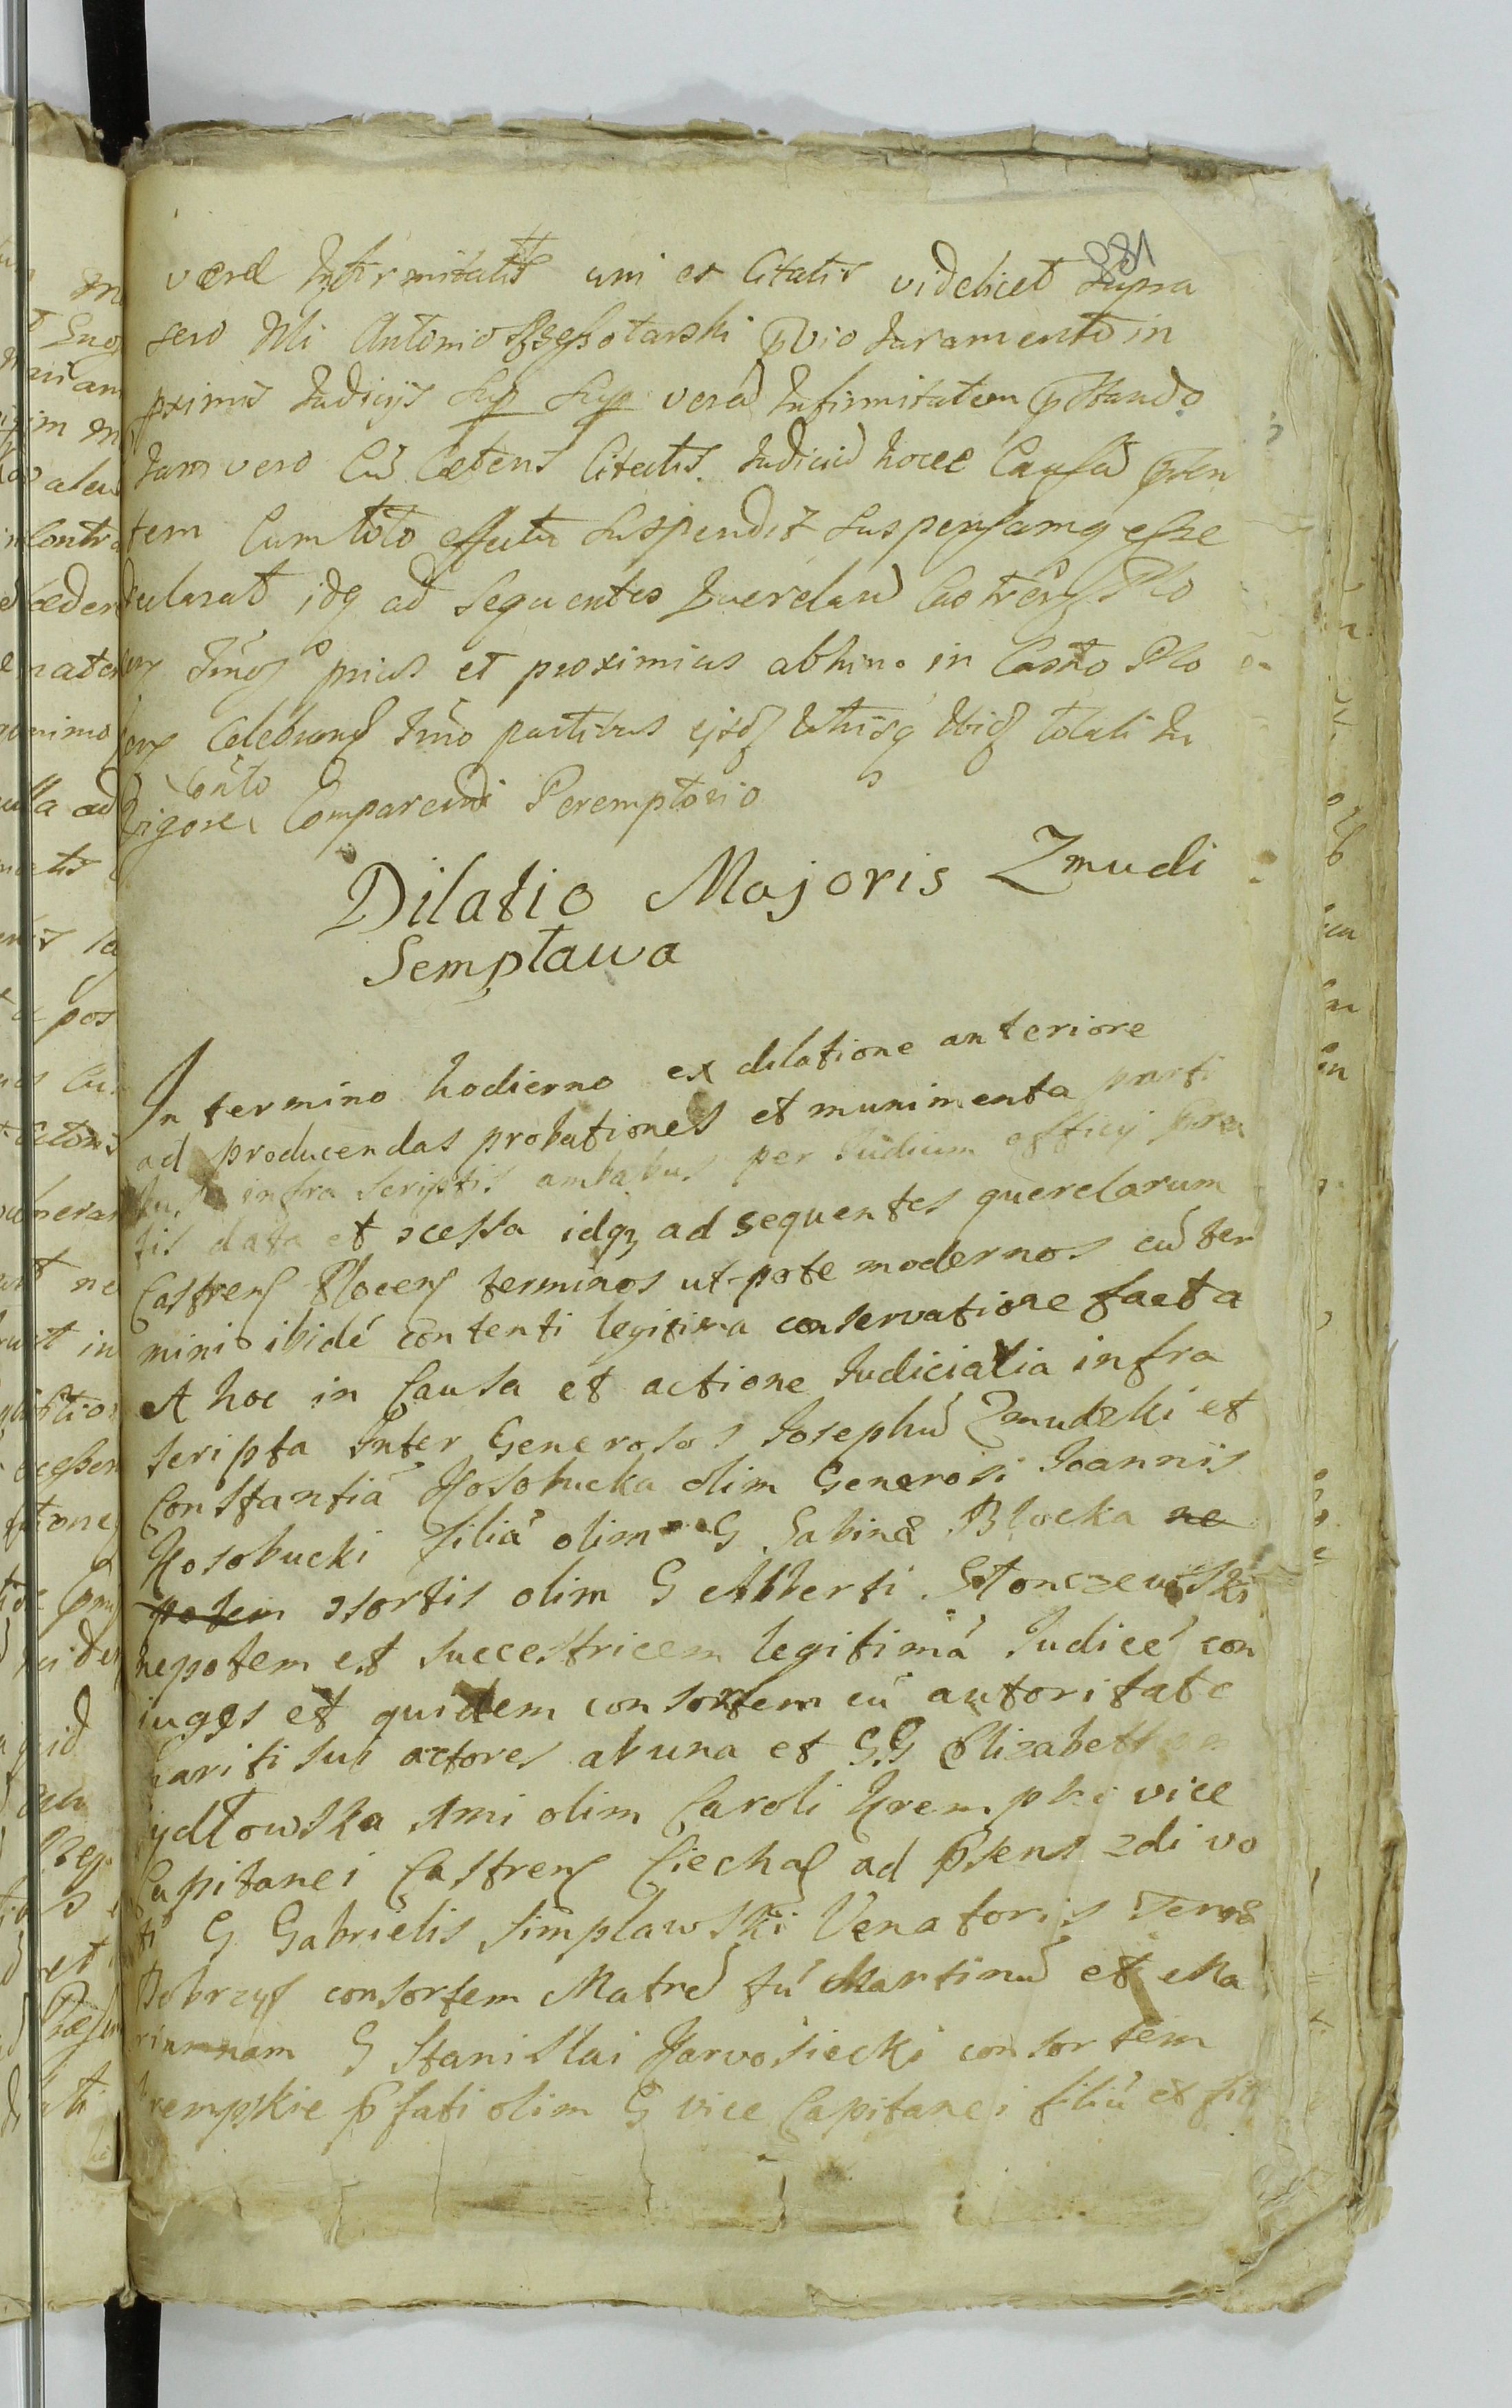 381
veræ Infirmitatis uni ex Citatis videlicet supra
Antonio juramento in
proximis Judicijs sup sup veram Infirmitatem
Jam vero Cum Cæteris Citatis Judicium hocce Causam
tem Cum toto effectu suspendit suspensamq esse
declarat idq ad sequentes Querelarum Castren Plo
cen Tnos prius et proximius abhinc in Castro Plo
cen Celebrand Tmo partibus ejsd
Contto
Rigore Comparendi Peremptorio
Dilatio Majoris Zmudi
Semptawa
In termino hodierno ex dilatione anteriore
ad producendas probationes et munimenta parti
bus infra scriptis ambabus per Iudicium officij
tis data et scessa idqz ad sequentes querelarum
Castren Plocen terminos ut-pote modernos cū ter
mini ibidé contenti legitima conservatione facta
A hoc in Causa et actione Iudicialia infra
scripta Inter Generosos Iosephū Zmudzki et
Constantiā Kosobucka olim Generosi Ioannis
Kosobucki filiā olim G Sabinæ Blocka ne
potem
nepotem et successtricem legitimā Iudicé con
iuges et quidem consortem cū autoritate
mariti sui actores ab una et G.G Elizabetham
ydłowska 1mi olim Caroli Krempski vice
Capitanei Castren Ciechan ad psens 2di vo
ti G Gabrielis Simplawski Venatoris Terræ
Dobrzyn consortem Matrem tū Martinum et Ma
riannam G Stanislai Karwosiecki consortem
Krempskie pfati olim G vice Capitanei filiū et fil